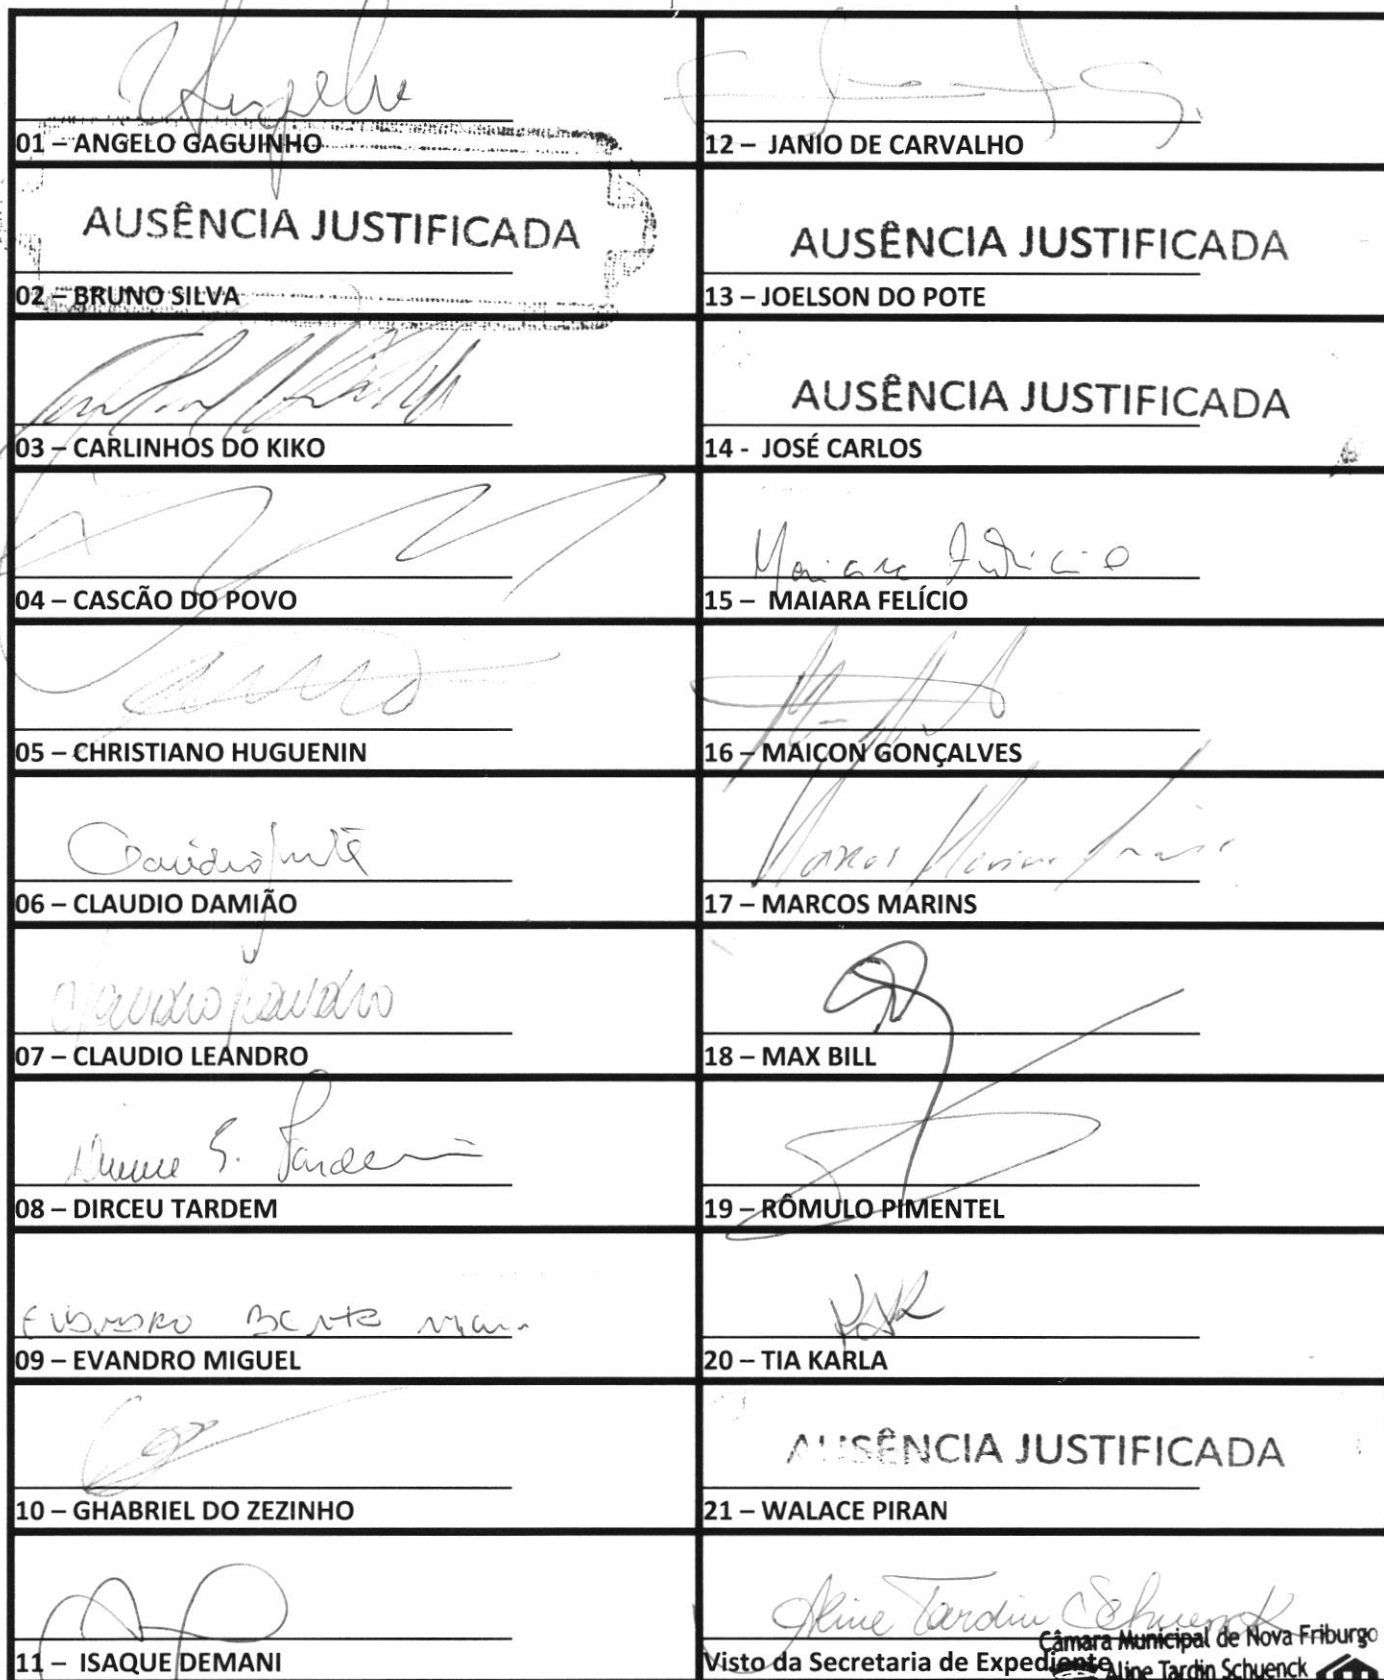 01 – ANGELO GAGUINHO
AUSÊNCIA JUSTIFICADA
02 – BRUNO SILVA
03 – CARLINHOS DO KIKO
04 – CASCÃO DO POVO
05 – CHRISTIANO HUGUENIN
06 – CLAUDIO DAMIÃO
Claudio Leandro
07 – CLAUDIO LEANDRO
Dirceu S. Tardem
08 – DIRCEU TARDEM
09 – EVANDRO MIGUEL
10 – GHABRIEL DO ZEZINHO
11 – ISAQUE DEMANI
12 – JANIO DE CARVALHO
AUSÊNCIA JUSTIFICADA
13 – JOELSON DO POTE
AUSÊNCIA JUSTIFICADA
14 - JOSÉ CARLOS
Maiara Felício
15 – MAIARA FELÍCIO
16 – MAICON GONÇALVES
Marcos Marins
17 – MARCOS MARINS
18 – MAX BILL
19 – RÔMULO PIMENTEL
20 – TIA KARLA
AUSÊNCIA JUSTIFICADA
21 – WALACE PIRAN
Aline Tardin Schuenck
Câmara Municipal de Nova Friburgo
Visto da Secretaria de Expediente
Aline Tardin Schuenck